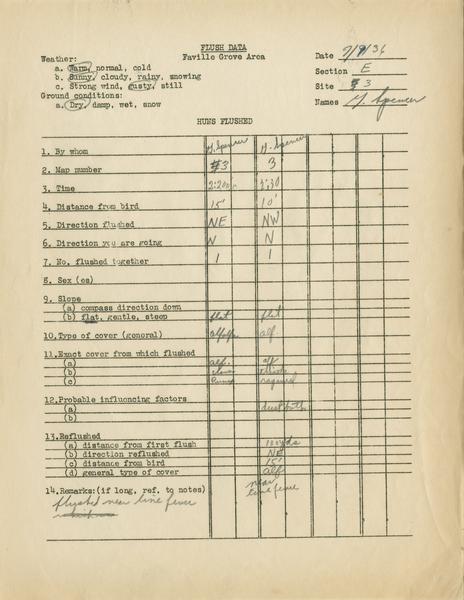 FLUSH DATA
Faville Grove Area
Weather:
a. Warm, normal, cold
b. Sunny, cloudy, rainy, snowing
c. Strong wind, gusty, still
Ground conditions:
a. Dry, damp, wet, snow
Date 7/9/36
Section E
Site #3
Names G. Spencer
HUNS FLUSHED
1. By whom G. Spencer G. Spencer
2. Map number #3 3
3. Time 2:20 2:30
4. Distance from bird 15' 10'
5. Direction flushed NE NW
6. Direction you are going N N
7. No. flushed together 1 1
8. Sex (es)
9. Slope
(a) compass direction down
(b) flat, gentle, steep flat flat
10. Type of cover (general) alfalfa alf.
11. Exact cover from which flushed
(a) alf. alf
(b)
(c) ragweed
12. Probable influencing factors
(a) dust bath
(b)
13. Reflushed
(a) distance from first flush 100 yds
(b) direction reflushed NE
(c) distance from bird 15'
(d) general type of cover alf
14. Remarks: (if long, ref. to notes) near line fence
flushed near line fence